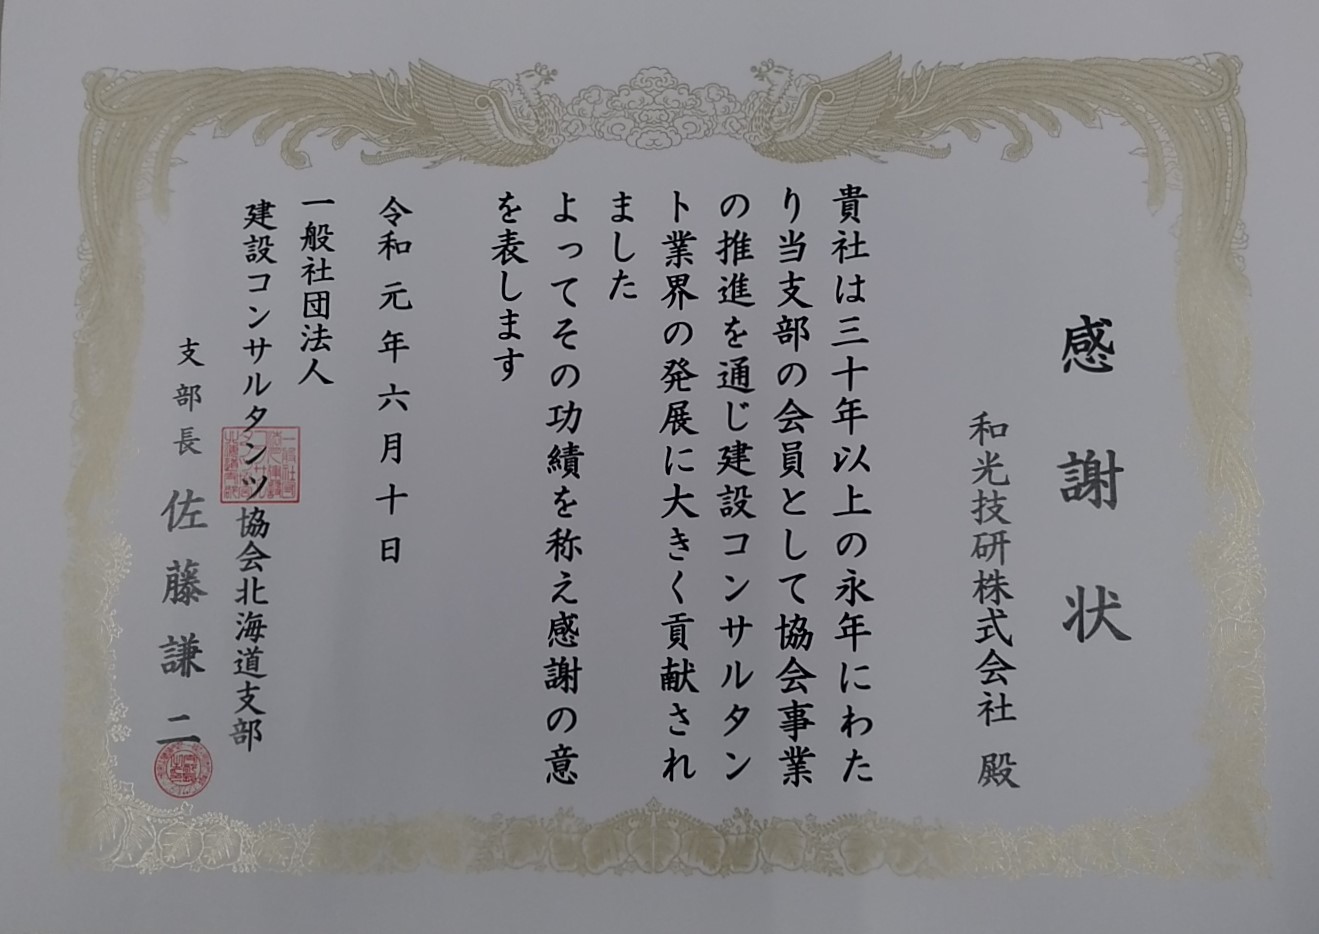 感謝状
和光技研株式会社 殿
貴社は三十年以上の永年にわた
り当支部の会員として協会事業
の推進を通じ建設コンサルタン
ト業界の発展に大きく貢献され
ました
よってその功績を称え感謝の意
を表します
令和元年六月十日
一般社団法人
建設コンサルタンツ協会北海道支部
支部長 佐藤謙二